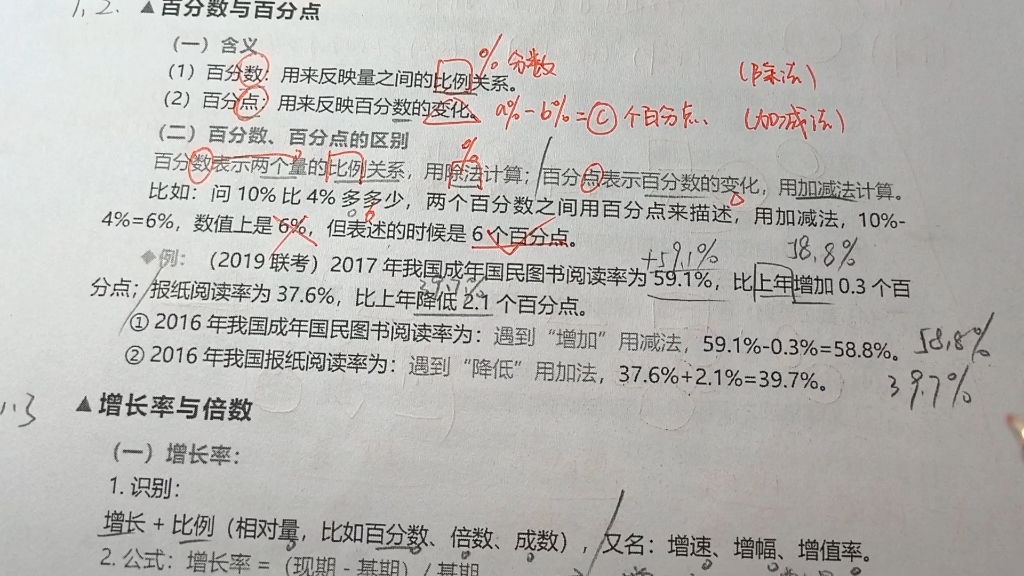 1.2. ▲百分数与百分点
（一）含义
（1）百分数：用来反映量之间的比例关系。 % 分数 （除法）
（2）百分点：用来反映百分数的变化。 a%-b%=ⓒ个百分点、 （加减法）
（二）百分数、百分点的区别
%
百分数表示两个量的比例关系，用除法计算；百分点表示百分数的变化，用加减法计算。
比如：问 10% 比 4% 多多少，两个百分数之间用百分点来描述，用加减法，10%-
4%=6%，数值上是 6%，但表述的时候是 6 个百分点。
+59.1% 58.8%
◆例：（2019 联考）2017 年我国成年国民图书阅读率为 59.1%，比上年增加 0.3 个百
39.7%
分点；报纸阅读率为 37.6%，比上年降低 2.1 个百分点。
① 2016 年我国成年国民图书阅读率为：遇到“增加”用减法，59.1%-0.3%=58.8%。 58.8%
② 2016 年我国报纸阅读率为：遇到“降低”用加法，37.6%+2.1%=39.7%。 39.7%
1.3 ▲增长率与倍数
（一）增长率：
1. 识别：
增长 + 比例（相对量，比如百分数、倍数、成数），又名：增速、增幅、增值率。
2. 公式：增长率 =（现期 - 基期）/ 基期